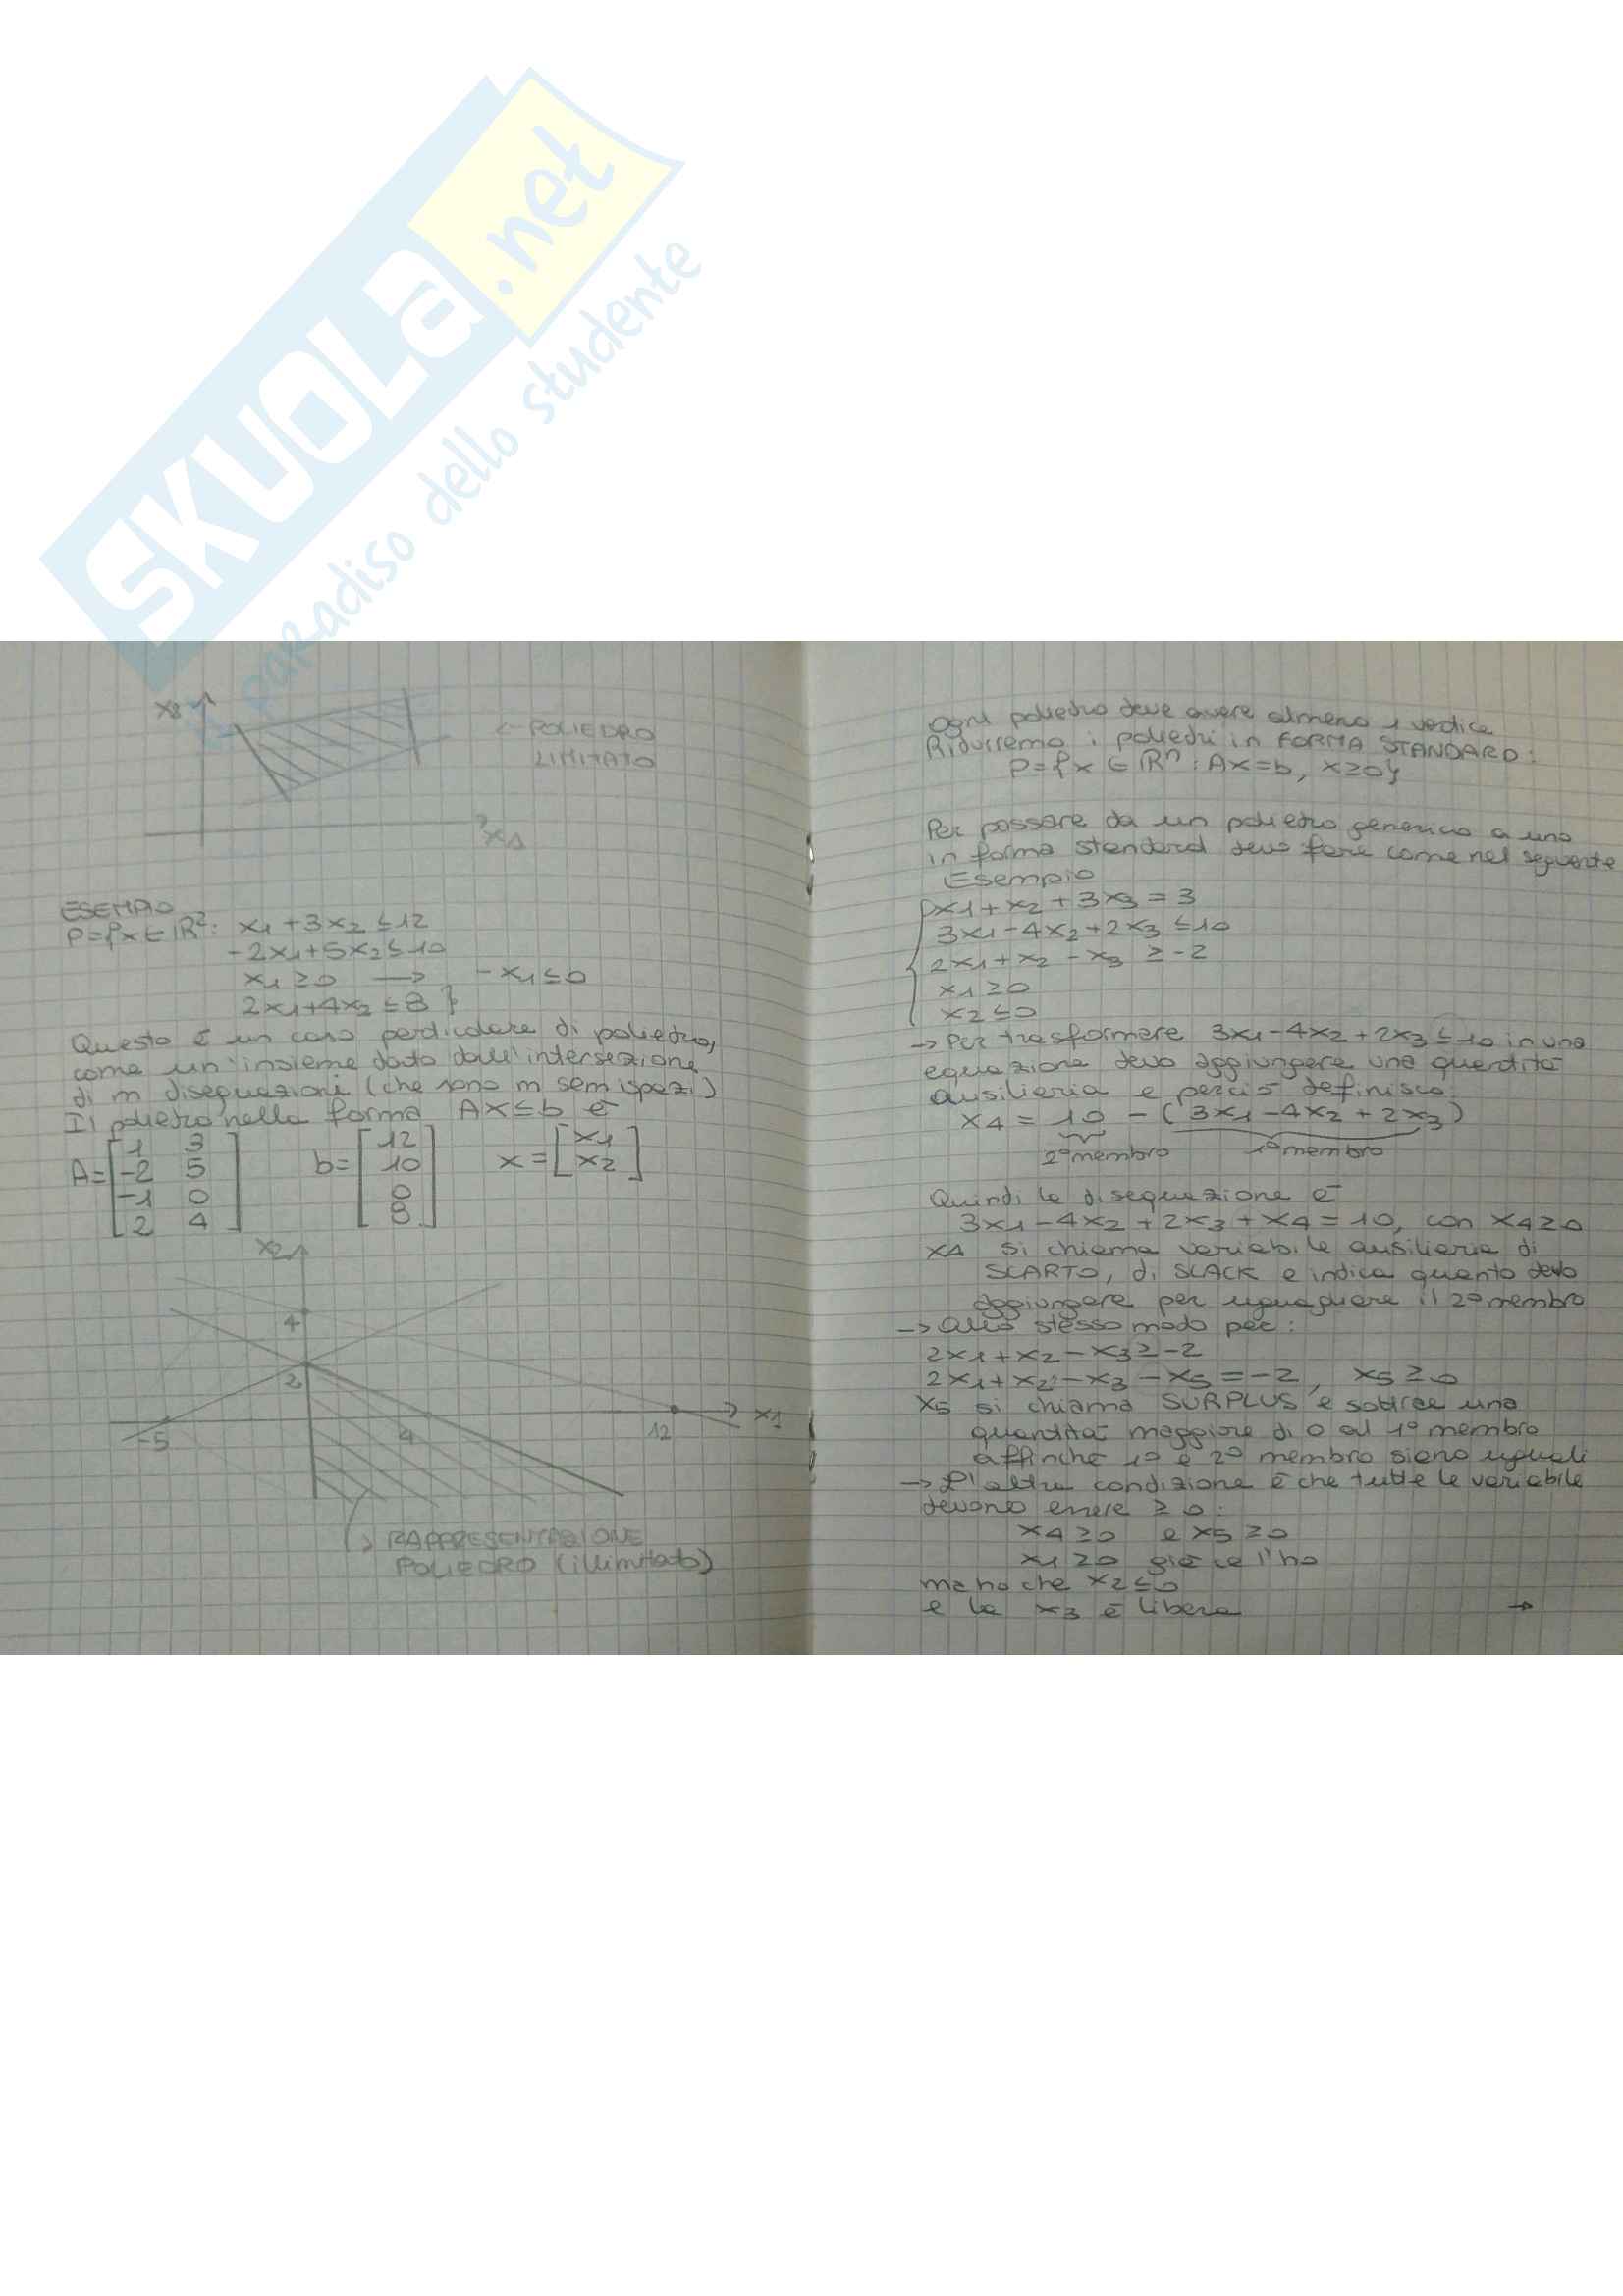 SKUOLA.net
paradiso dello studente
x2
← POLIEDRO
LIMITATO
x1
ESEMPIO
P={x ∈ ℝ²: x1+3x2 ≤ 12
-2x1+5x2 ≤ 10
x1 ≥ 0 → -x1 ≤ 0
2x1+4x2 ≤ 8 }
Questo è un caso particolare di poliedro,
come un insieme dato dall'intersezione
di m disequazioni (che sono m semispazi)
Il poliedro nella forma Ax ≤ b è
A=[1 3
-2 5
-1 0
2 4]
b=[12
10
0
8]
x=[x1
x2]
x2
4
2
-5
4
12
x1
→ RAPPRESENTAZIONE
POLIEDRO (illimitato)
Ogni poliedro deve avere almeno 1 vertice
Ridurremo i poliedri in FORMA STANDARD:
P={x ∈ ℝⁿ: Ax=b, x≥0}
Per passare da un poliedro generico a uno
in forma standard devo fare come nel seguente
Esempio
x1+x2+3x3 = 3
3x1-4x2+2x3 ≤ 10
2x1+x2-x3 ≥ -2
x1 ≥ 0
x2 ≤ 0
→ Per trasformare 3x1-4x2+2x3 ≤ 10 in una
equazione devo aggiungere una quantità
ausiliaria e perciò definisco:
x4 = 10 - (3x1-4x2+2x3)
2º membro 1º membro
Quindi la disequazione è
3x1-4x2+2x3+x4 = 10, con x4 ≥ 0
x4 si chiama variabile ausiliaria di
SCARTO, di SLACK e indica quanto devo
aggiungere per uguagliare il 2º membro
→ Allo stesso modo per:
2x1+x2-x3 ≥ -2
2x1+x2-x3-x5 = -2, x5 ≥ 0
x5 si chiama SURPLUS e sottrae una
quantità maggiore di 0 al 1º membro
affinché 1º e 2º membro siano uguali
→ L'altra condizione è che tutte le variabile
devono essere ≥ 0:
x4 ≥ 0 e x5 ≥ 0
x1 ≥ 0 già ce l'ho
ma ho che x2 ≤ 0
e la x3 è libera →